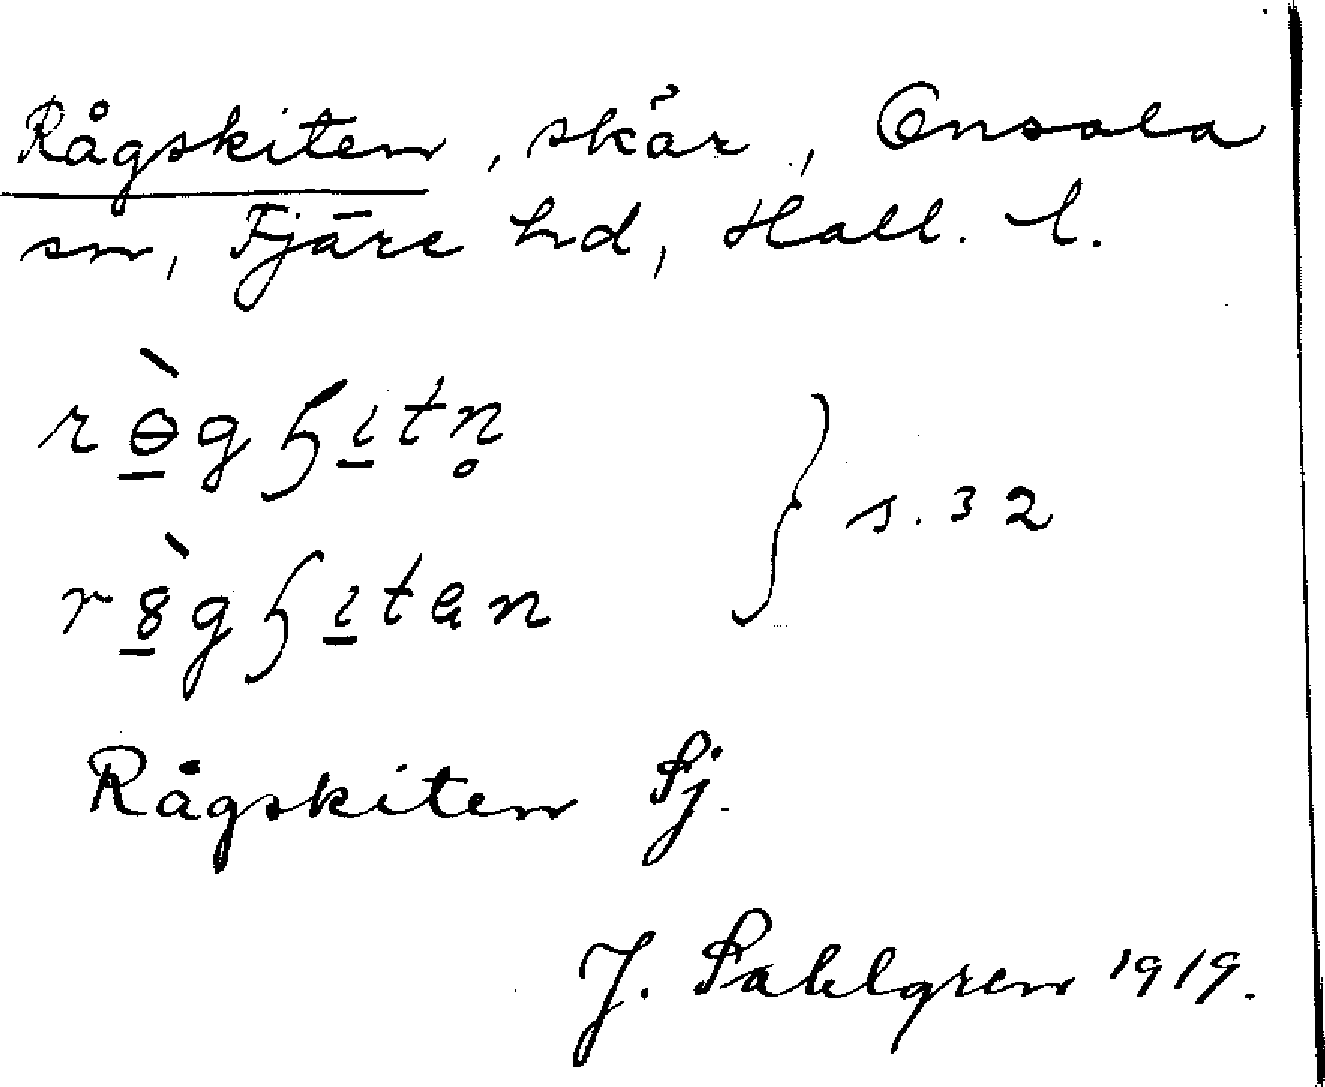 Rågskiten, skär, Onsala
sn, Fjäre hd, Hall. l.
rɵ̠̀gɧɩ̠tn̥
} s. 32
r8̠̀gɧɩ̠tɐn
Rågskiten Sj.
J. Sahlgren 1919.